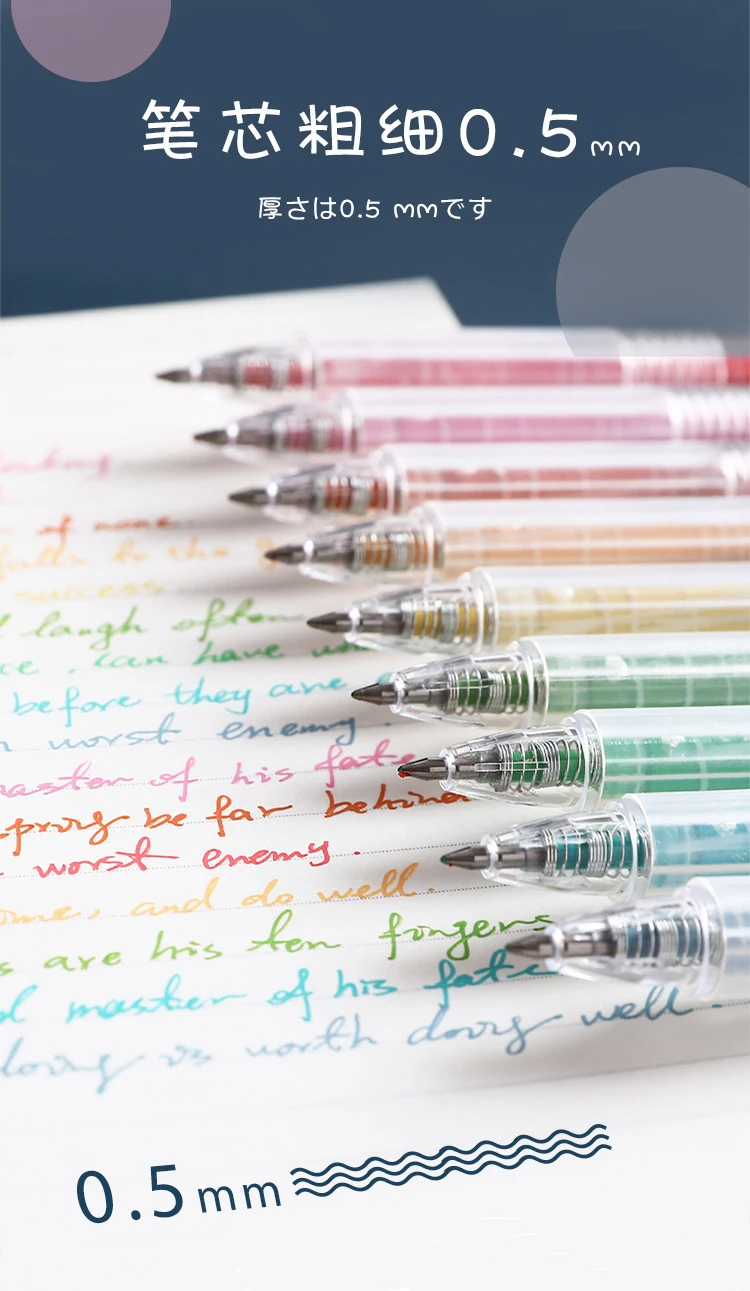 笔芯粗细0.5mm
厚さは0.5 mmです
of none.
success.
laugh often
ce. can have
before they are
worst enemy.
master of his fate
spring be far behind
worst enemy.
ome, and do well.
s are his ten fingers
l master of his fate
doing is worth doing well.
0.5mm